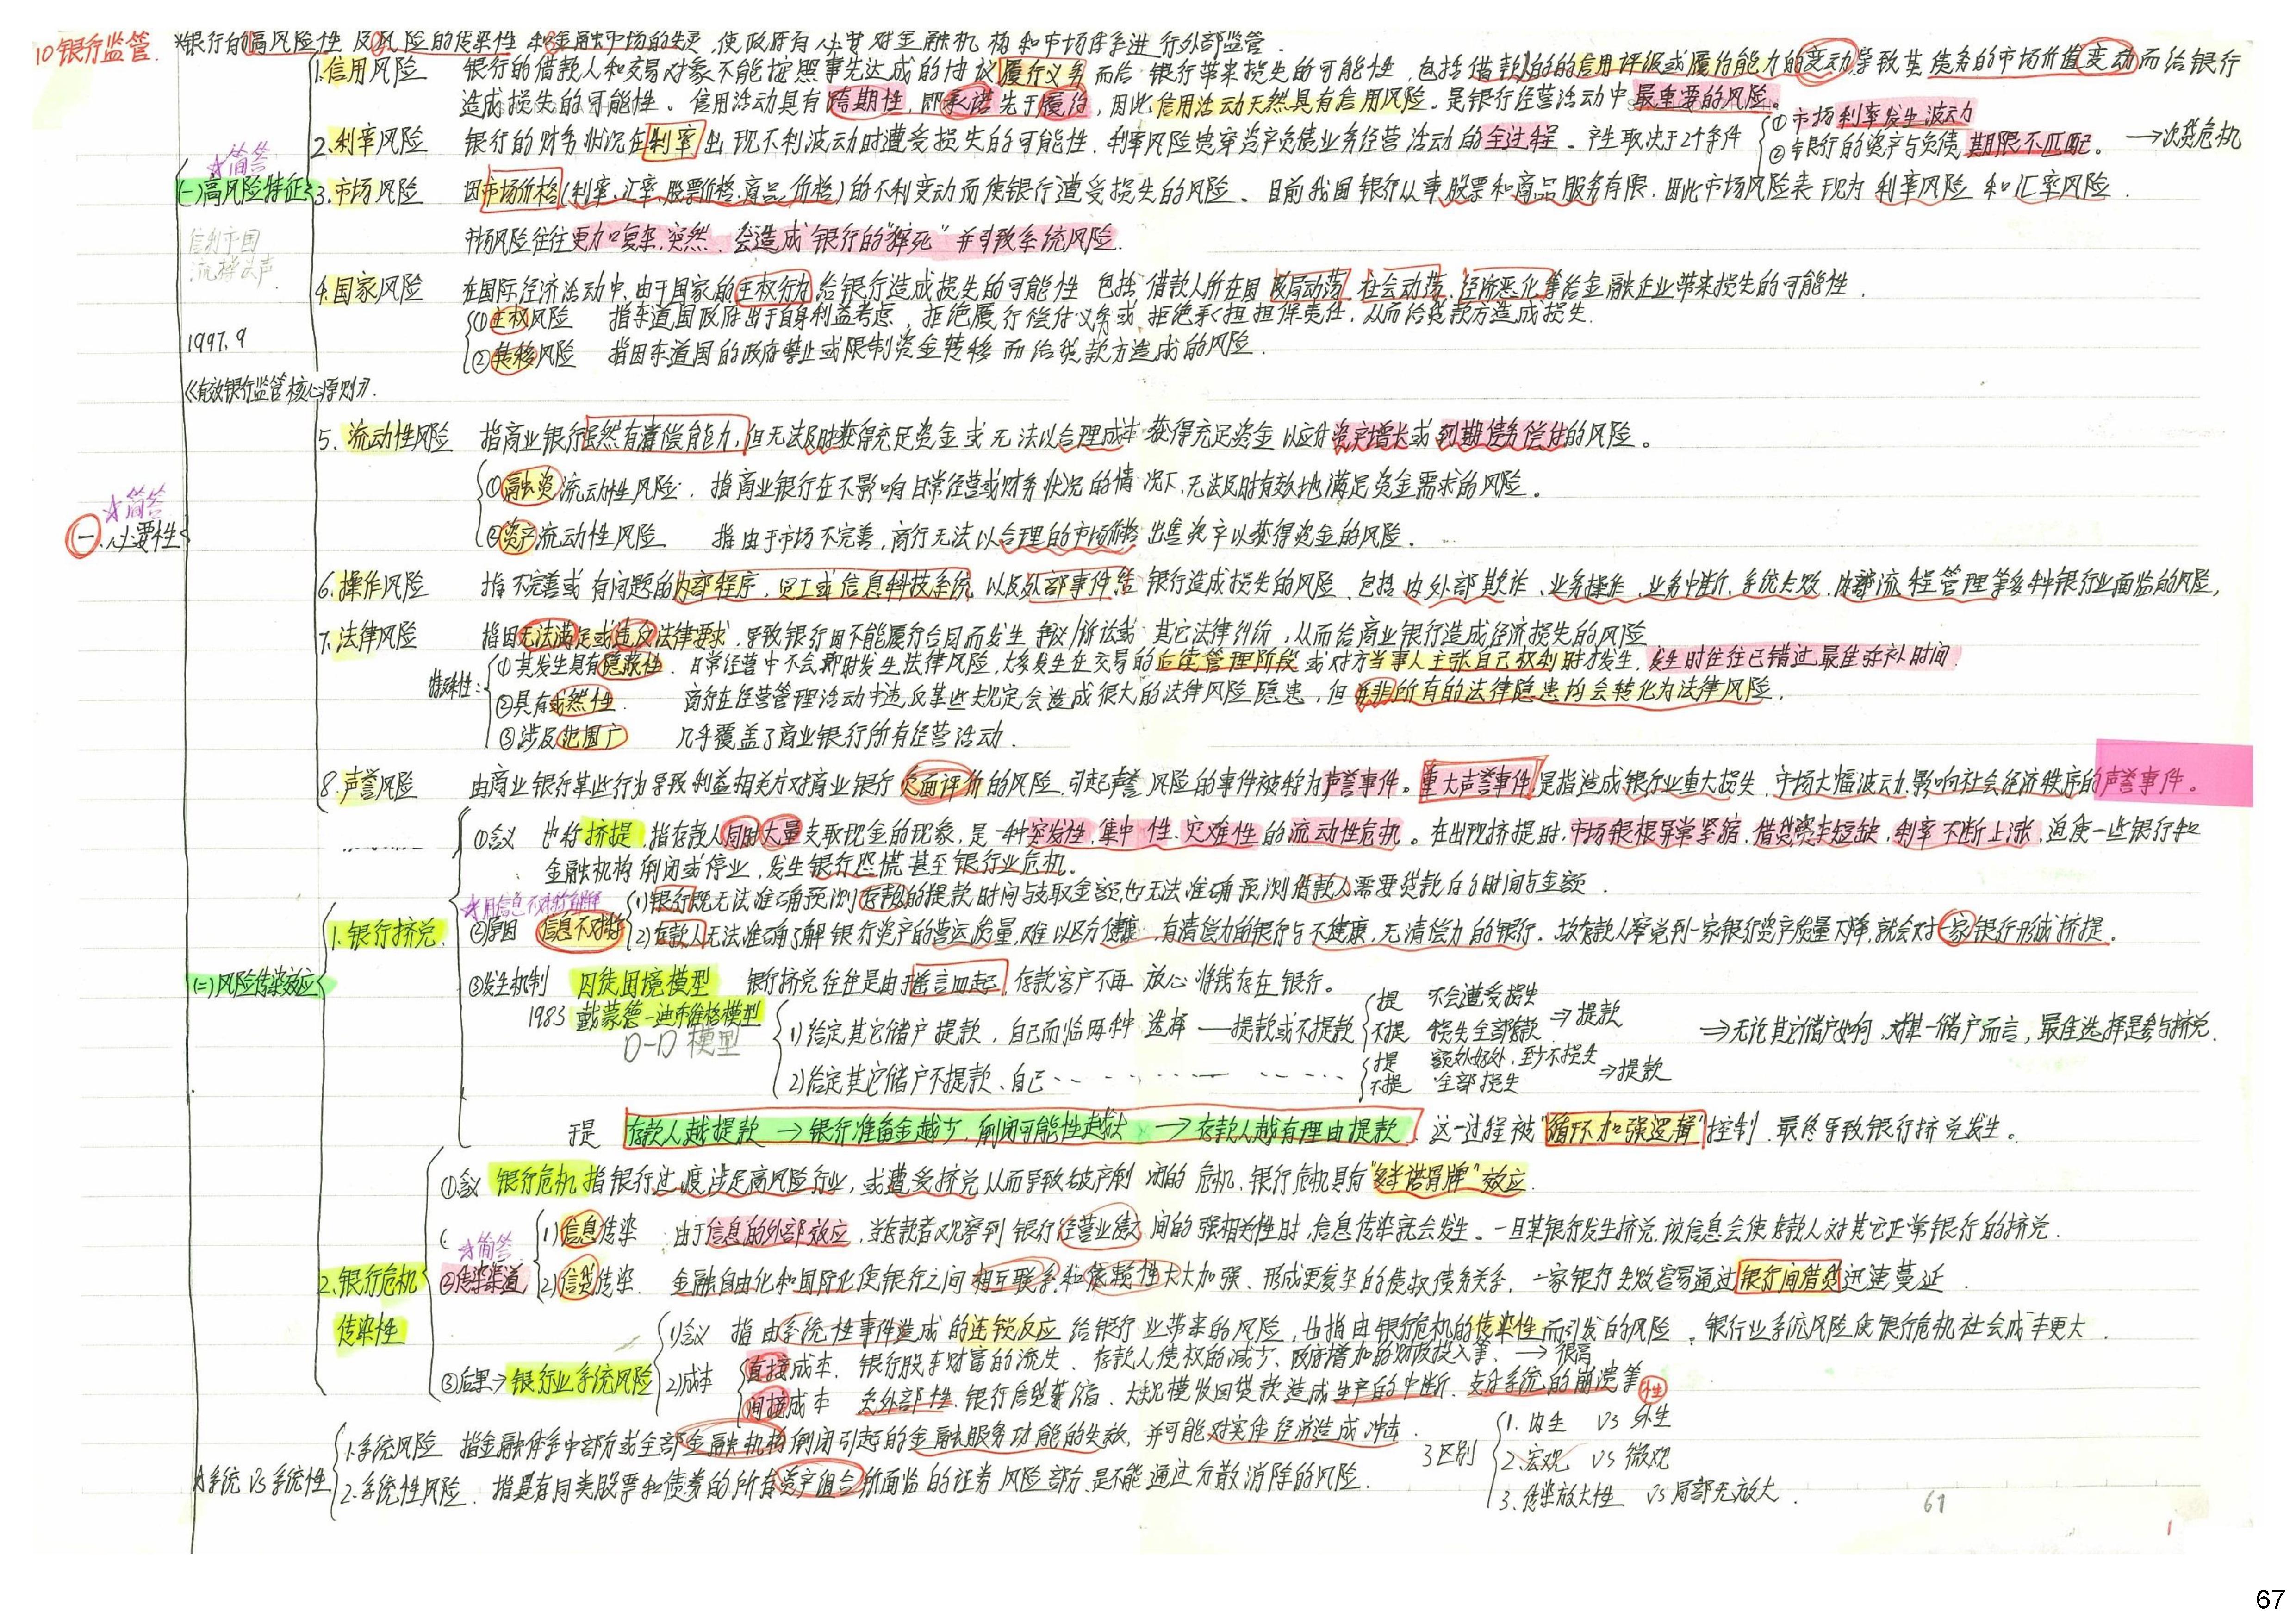 10 银行监管.
*银行的高风险性 及风险的传染性 和金融市场的失灵,使政府有必要对金融机构和市场体系进行外部监管.
1.信用风险 银行的借款人和交易对象不能按照事先达成的协议履行义务而给银行带来损失的可能性,包括借款人的信用评级或履约能力的变动导致其债务的市场价值变动而给银行
造成损失的可能性。信用活动具有跨期性,即承诺先于履约,因此信用活动天然具有信用风险.是银行经营活动中最重要的风险。
2.利率风险 银行的财务状况在利率出现不利波动时遭受损失的可能性.利率风险贯穿资产负债业务经营活动的全过程。产生取决于2个条件
①市场利率发生波动
②银行的资产与负债期限不匹配。 →次贷危机
☆简答
(一)高风险特征
3.市场风险 因市场价格(利率、汇率、股票价格、商品价格)的不利变动而使银行遭受损失的风险。目前我国银行从事股票和商品服务有限.因此市场风险表现为利率风险和汇率风险.
市场风险往往更加复杂、突然.会造成银行的"猝死"并引致系统风险.
信利市国
流操法声
4.国家风险 在国际经济活动中,由于国家的主权行为给银行造成损失的可能性 包括借款人所在国政局动荡、社会动荡、经济恶化等给金融企业带来损失的可能性.
①主权风险 指东道国政府出于自身利益考虑,拒绝履行偿付义务或拒绝承担担保责任,从而给贷款方造成损失.
②转移风险 指因东道国的政府禁止或限制资金转移而给贷款方造成的风险.
1997.9
《有效银行监管核心原则》.
5.流动性风险 指商业银行虽然有清偿能力,但无法及时获得充足资金或无法以合理成本获得充足资金以应付资产增长或到期债务偿付的风险。
①融资流动性风险.指商业银行在不影响日常经营或财务状况的情况下,无法及时有效地满足资金需求的风险。
②资产流动性风险 指由于市场不完善,商行无法以合理的市场价格出售资产以获得资金的风险.
☆简答
一.必要性
6.操作风险 指不完善或有问题的内部程序,员工或信息科技系统以及外部事件给银行造成损失的风险、包括内外部欺诈、业务操作、业务中断、系统失效、内部流程管理等多种银行业面临的风险,
7.法律风险 指因无法满足或违反法律要求,导致银行因不能履行合同而发生争议/诉讼或其它法律纠纷,从而给商业银行造成经济损失的风险
特殊性:
①其发生具有隐蔽性.日常经营中不会即时发生法律风险,大多发生在交易的后续管理阶段或对方当事人主张自己权利时才发生,发生时往往已错过最佳弥补时间.
②具有或然性.商行在经营管理活动中违反某些规定会造成很大的法律风险隐患,但并非所有的法律隐患均会转化为法律风险.
③涉及范围广 几乎覆盖了商业银行所有经营活动.
8.声誉风险 由商业银行某些行为导致利益相关方对商业银行负面评价的风险.引起声誉风险的事件被称为声誉事件。重大声誉事件是指造成银行业重大损失、市场大幅波动、影响社会经济秩序的声誉事件。
①含义 也称挤提,指存款人同时大量支取现金的现象,是一种突发性、集中性、灾难性的流动性危机。在出现挤提时,市场银根异常紧缩,借贷资本短缺,利率不断上涨,迫使一些银行和
金融机构倒闭或停业,发生银行恐慌甚至银行业危机.
☆用信息不对称解释
1.银行挤兑
②原因 信息不对称
1)银行既无法准确预测存款的提款时间与支取金额,也无法准确预测借款人需要贷款的时间与金额.
2)存款人无法准确了解银行资产的营运质量,难以区分健康、有清偿力的银行与不健康,无清偿力的银行.故存款人察觉到一家银行资产质量下降,就会对一家银行形成挤提。
(二)风险传染效应
③发生机制 囚徒困境模型 银行挤兑往往是由于谣言四起,存款客户不再放心将钱存在银行。
1983 戴蒙德-迪布维格模型
D-D模型
1)给定其它储户提款,自己面临两种选择——提款或不提款
提 不会遭受损失
不提 损失全部存款 ⇒提款
2)给定其它储户不提款、自己…
提 额外好处,至少不损失
不提 全部损失 ⇒提款
⇒无论其它储户如何,对某一储户而言,最佳选择是参与挤兑.
于是 存款人越提款→银行准备金越少,倒闭可能性越大→存款人越有理由提款.这一过程被"循环加强逻辑"控制.最终导致银行挤兑发生。
①含义 银行危机指银行过度涉足高风险行业,或遭受挤兑从而导致破产倒闭的危机、银行危机具有"多米诺骨牌"效应.
☆简答
②传染渠道
1)信息传染 由于信息的外部效应,当存款者观察到银行经营业绩之间的强相关性时,信息传染就会发生。一旦某银行发生挤兑,该信息会使存款人对其它正常银行的挤兑.
2)信贷传染.金融自由化和国际化使银行之间相互联系和依赖性大大加强、形成更复杂的债权债务关系,一家银行失败容易通过银行间借贷迅速蔓延.
2.银行危机
传染性
③后果→银行业系统风险
1)含义 指由系统性事件造成的连锁反应给银行业带来的风险,也指由银行危机的传染性而引发的风险.银行业系统风险使银行危机社会成本更大.
2)成本
直接成本.银行股东财富的流失、存款人债权的减少、政府增加的财政投入等.→很高
间接成本 负外部性.银行信贷萎缩、大规模收回贷款造成生产的中断、支付系统的崩溃等
☆系统 VS 系统性
1.系统风险 指金融体系中部分或全部金融机构倒闭引起的金融服务功能的失效,并可能对实体经济造成冲击.
2.系统性风险.指具有同类股票和债券的所有资产组合所面临的证券风险部分.是不能通过分散消除的风险.
3区别
性
1.内生 VS 外生
2.宏观 VS 微观
3.传染放大性 VS 局部无放大.
61
1
67